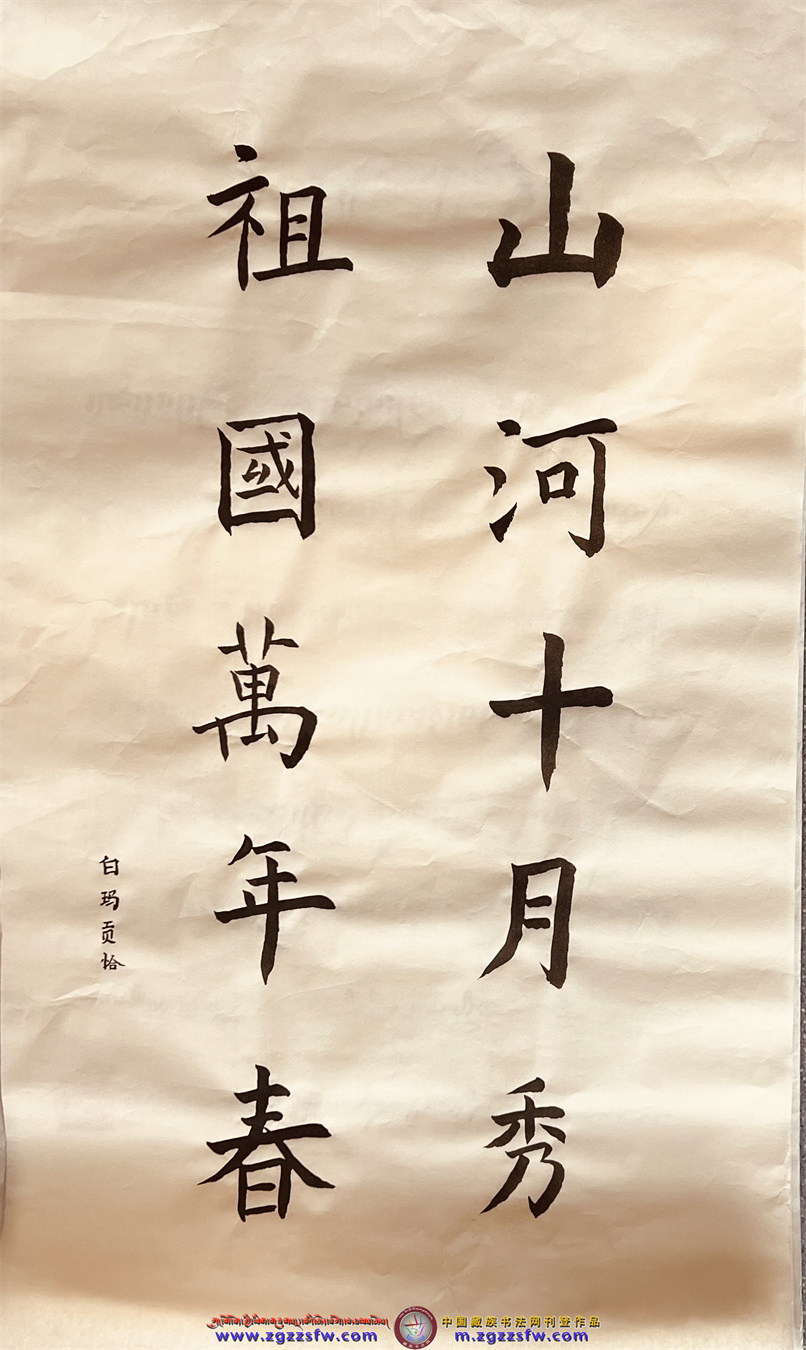 山河十月秀
祖國萬年春
白玛贡恰
中国藏族书法网刊登作品
www.zgzzsfw.com
m.zgzzsfw.com